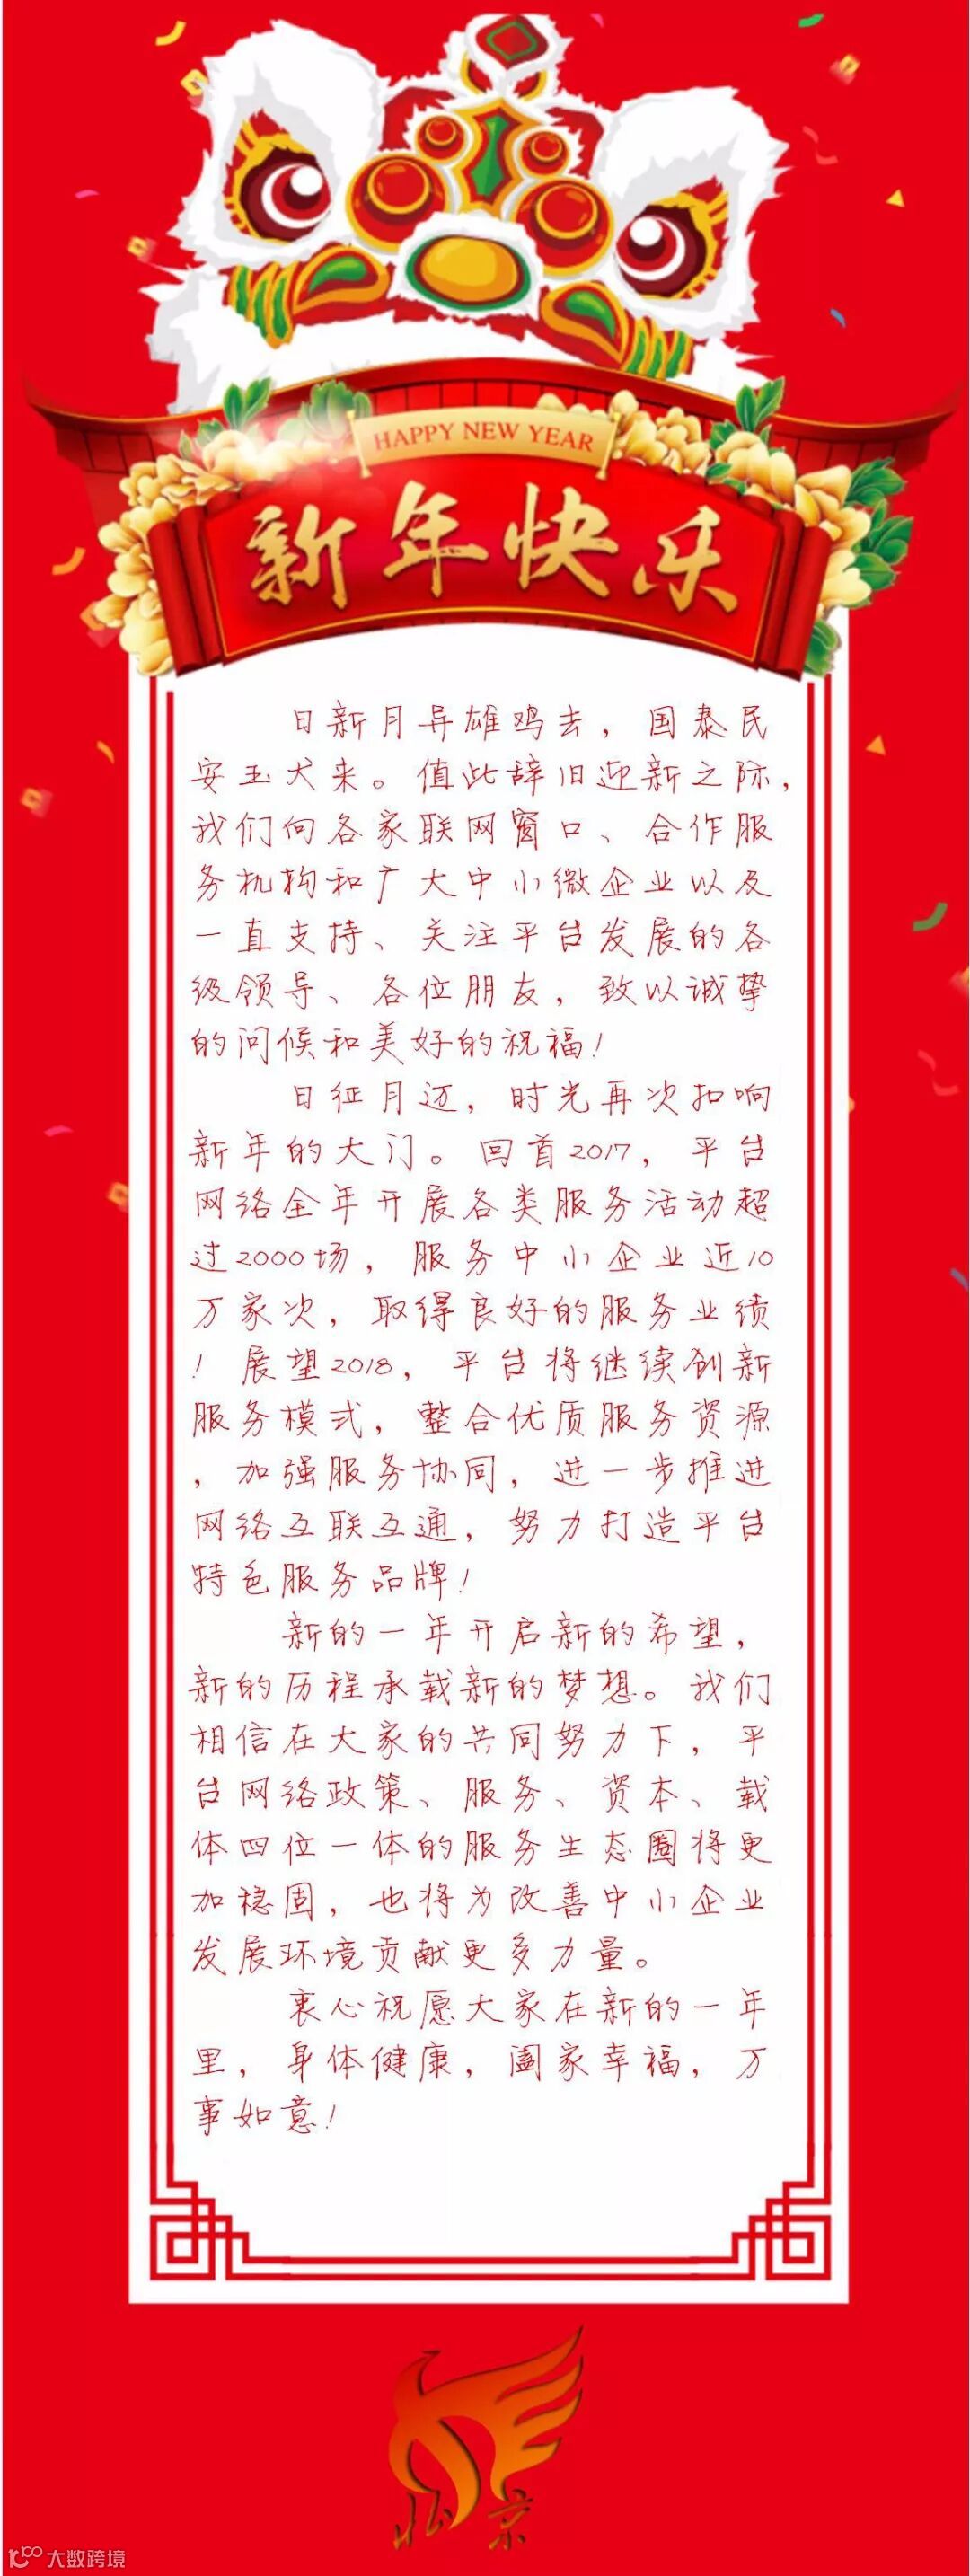 HAPPY NEW YEAR
新年快乐
日新月异雄鸡去，国泰民
安玉犬来。值此辞旧迎新之际，
我们向各家联网窗口、合作服
务机构和广大中小微企业以及
一直支持、关注平台发展的各
级领导、各位朋友，致以诚挚
的问候和美好的祝福！
日征月迈，时光再次扣响
新年的大门。回首2017，平台
网络全年开展各类服务活动超
过2000场，服务中小企业近10
万家次，取得良好的服务业绩
！展望2018，平台将继续创新
服务模式，整合优质服务资源
，加强服务协同，进一步推进
网络互联互通，努力打造平台
特色服务品牌！
新的一年开启新的希望，
新的历程承载新的梦想。我们
相信在大家的共同努力下，平
台网络政策、服务、资本、载
体四位一体的服务生态圈将更
加稳固，也将为改善中小企业
发展环境贡献更多力量。
衷心祝愿大家在新的一年
里，身体健康，阖家幸福，万
事如意！
北京
大数跨境